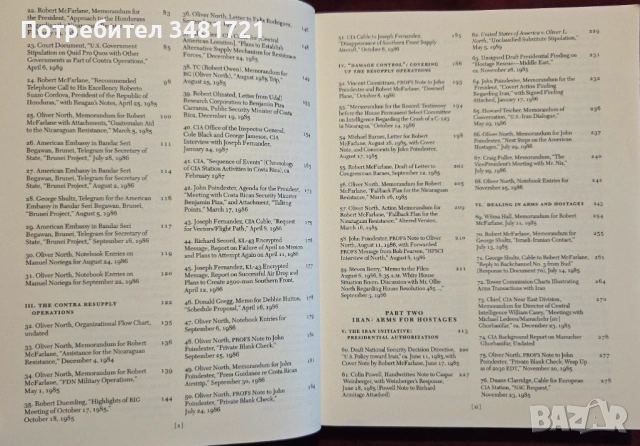 Потребител 3481721
22. Robert McFarlane, Memorandum for 83
President, "Approach to the Honduras
April 6, 1989
23. Court Document, "U.S. Government 85
Stipulation on Quid Pro Quos with Other
Governments as Part of Contra Operations,"
24. Robert McFarlane, "Recommended
Telephone Call to His Excellency Roberto
Suazo Cordova, President of the Republic of
Honduras," with Reagan's Notes, April 25, 1985
25. Oliver North, Memorandum for Robert
McFarlane with Attachments, "Guatemalan Aid
to the Nicaraguan Resistance," March 5, 1985
26. American Embassy in Bandar Seri
Begawan, Brunei, Telegram for Secretary of
State, "Brunei Project," July 26, 1986
27. American Embassy in Bandar Seri
Begawan, Brunei, Telegram for Secretary of
State, "Brunei Project," August 2, 1986
28. George Shultz, Telegram for the American
Embassy in Bandar Seri Begawan, Brunei,
"Brunei Project," August 5, 1986
29. American Embassy in Bandar Seri
Begawan, Brunei, Telegram for Secretary of
State, "Brunei Project," September 16, 1986
30. Oliver North, Notebook Entries on
Manuel Noriega for August 24, 1986
31. Oliver North, Notebook Entries on
Manuel Noriega for September 22, 1986
III. THE CONTRA RESUPPLY 122
OPERATIONS
32. Oliver North, Organizational Flow Chart,
undated
33. Oliver North, Memorandum for Robert
McFarlane, "Assistance for the Nicaraguan
Resistance," December 4, 1984
34. Oliver North, Memorandum for Robert
McFarlane, "FDN Military Operations,"
May 1, 1985
35. Robert Duemling, "Highlights of RIG
Meeting of October 17, 1985,"
October 18, 1985
[x]
36. Oliver North, Letter to Calero
Alternate Supply Mechanism for Resistance
38. TC (Robert Owen), Memorandum for
BG (Oliver North), "August 1985 Trip,"
August 25, 1985
39. Robert Olmsted, Letter from Udall
Research Corporation to Benjamin Piza
Carranza, Public Security Minister of Costa Rica,
December 19, 1985
40. CIA Office of the Inspector General,
Cole Black and George Jameson, CIA
Interview with Joseph Fernandez,
January 24, 1987
41. CIA, "Sequence of Events" (Chronology
of CIA Station Activities in Costa Rica), ca
February 1987
42. John Poindexter, Agenda for the President,
"Meeting with Costa Rican Security Minister
Benjamin Piza," and Attachment, "Talking
Points," March 17, 1986
43. Joseph Fernandez, CIA Cable, "Request
for Vectors/Flight Path," April 9, 1986
44. Richard Secord, KL-43 Encrypted
Message, Report on Failure of April 10 Mission
and Plans to Attempt Again on April 11, 1986
45. Joseph Fernandez, KL-43 Encrypted
Message, Report on Successful Air Drop and
Plans to Create 2500-man Southern Front,
April 12, 1986
46. Donald Gregg, Memo for Debbie Hutton,
"Schedule Proposal," April 16, 1986
47. Oliver North, Notebook Entries for
September 6, 1986
48. Oliver North, PROFS Note to John
Poindexter, "Private Blank Check,"
September 25, 1986
49. Oliver North, Memorandum for John
Poindexter, "Press Guidance re Costa Rican
Airstrip," September 30, 1986
50. Oliver North, PROFS Note to John
Poindexter, "Private Blank Check,"
July 24, 1986
51. CIA Cable to Joseph Fernandez,
"Disappearance of Southern Front Supply
IV. "DAMAGE CONTROL": COVERING
UP THE RESUPPLY OPERATIONS
52. Vincent Cannistraro, PROFS Note to John
Poindexter and Robert McFarlane, "Downed
Plane," October 8, 1986
53. "Memorandum for the Record: Testimony
before the House Permanent Select Committee
on Intelligence Regarding the Crash of a C-123
in Nicaragua," October 14, 1986
54. Michael Barnes, Letter for Robert
McFarlane, August 16, 1985, with Cover
Note, and Comments by John Poindexter,
August 17, 1985
55. Robert McFarlane, Draft of Letter to
Congressman Barnes, September 12, 1985
56. Oliver North, Memorandum for Robert
McFarlane, "Fallback Plan for the Nicaraguan
Resistance," March 16, 1985
57. Oliver North, Action Memorandum for
Robert McFarlane, "Fallback Plan for the
Nicaraguan Resistance," Altered Version,
March 16, 1985
58. Oliver North, PROFS Note to John
Poindexter, August 11, 1986, with Forwarded
PROFS Message from Bob Pearson, "HPSCI
Interview of North," August 6, 1986
59. Steven Berry, "Memo to the Files:
August 6, 1986, 8:35 A.M. White House
Situation Room, Discussion with Mr. Ollie
North Regarding House Resolution 485...,"
September 3, 1986
PART TWO
IRAN: ARMS FOR HOSTAGES
V. THE IRAN INITIATIVE: 213
PRESIDENTIAL AUTHORIZATION
60. Draft National Security Decision Directive,
"U.S. Policy toward Iran," ca. June 11, 1985, with
Cover Note by Robert McFarlane, June 17, 1985
61. Colin Powell, Handwritten Note to Caspar
Weinberger, with Weinberger's Response,
June 18, 1985 (Powell Note to Richard
Armitage Attached)
62. United States of America v. Oliver L. 229
North, "Unclassified Substitute Stipulation,"
May 5, 1989
63. Unsigned Draft Presidential Finding on
"Hostage Rescue—Middle East,"
ca. November 26, 1985
64. John Poindexter, Memorandum for the
President, "Covert Action Finding
Regarding Iran," with Signed Finding
Attached, January 17, 1986
65. Howard Teicher, Memorandum of
Conversation, "U.S.-Iran Dialogue,"
May 29, 1986
66. Oliver North, Memorandum for John
Poindexter, "Next Steps on the American
Hostages," July 29, 1986
67. Craig Fuller, Memorandum, "The
Vice-President's Meeting with Mr. Nir,"
July 29, 1986
68. Oliver North, Notebook Entries for
November 25, 1986
VI. DEALING IN ARMS AND HOSTAGES
69. Wilma Hall, Memorandum for Robert
McFarlane, July 11, 1985
70. Robert McFarlane, Memorandum for
George Shultz, "Israeli-Iranian Contact,"
July 14, 1985
71. George Shultz, Cable to Robert McFarlane,
"Reply to Backchannel No. 3 from Bud"
(Response to Document 70), July 14, 1985
72. Tower Commission Charts Illustrating
Arms Transactions with Iran
73. Chief, CIA Near East Division,
Memorandum for Director of Central
Intelligence William Casey, "Meetings with
Michael Ledeen/Manucher [sic]
Ghorbanifar," ca. December 23, 1985
74. CIA Background Report on Manucher
Ghorbanifar, Undated
75. Oliver North, PROFS Note to John
Poindexter, "Private Blank Check, Wrap Up
as of 2030 EDT," November 20, 1985
76. Duane Clarridge, Cable for European 278
CIA Station, "NSC Request,"
November 25, 1985
[xi]
bazar